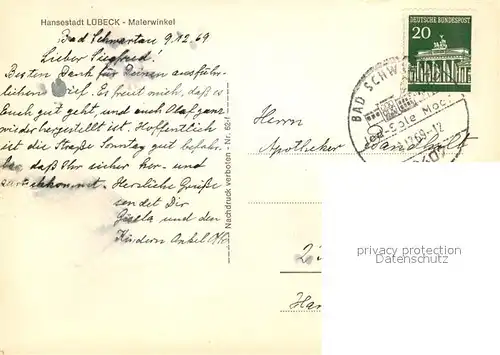 Hansestadt LÜBECK - Malerwinkel
Bad Schwartau 9.12.69
Lieber Siegfried!
Besten Dank für Deinen ausführ-
lichen Brief. Es freut mich, daß es
Euch gut geht, und auch Olaf ganz
wiederhergestellt ist. Hoffentlich
ist die Straße Sonntag gut befahr-
bar daß Ihr sicher her- und
zurückkommt. Herzliche Grüße
sendet Dir
Gisela und den
Kindern Onkel
Nachdruck verboten - Nr. 62-f
DEUTSCHE BUNDESPOST
20
BAD SCHW
Jod-Sole
12.69-12
Herrn
Apotheker
privacy protection
Datenschutz